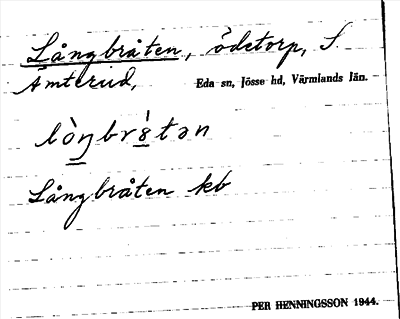 Långbråten, ödetorp, S.
Ämterud, Eda sn, Jösse hd, Värmlands län.
lòŋbrə̀tən
Långbråten kb
PER HENNINGSSON 1944.